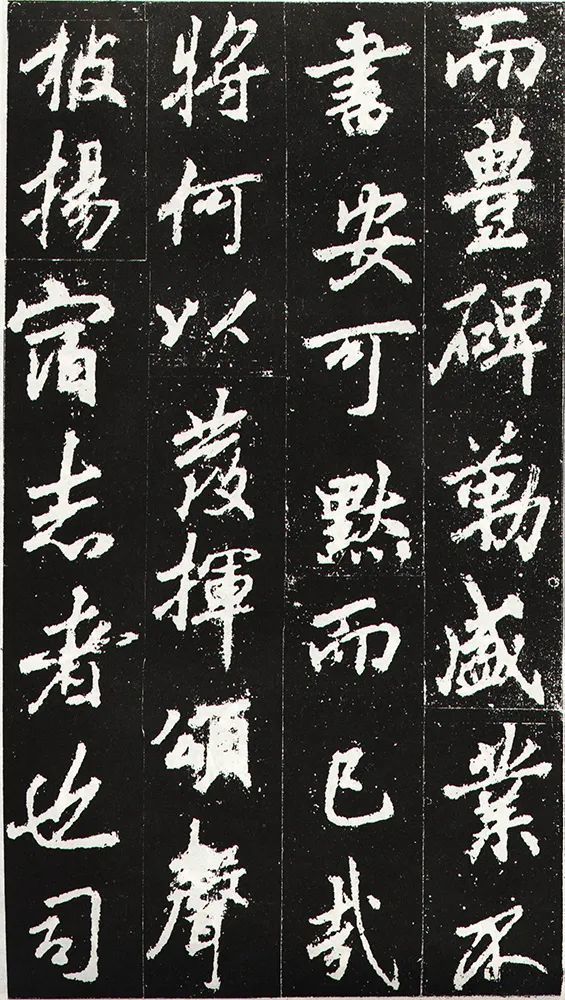 而豊碑勒盛業不
書安可黙而已哉
將何以發揮頌聲
披揚宿志者也司